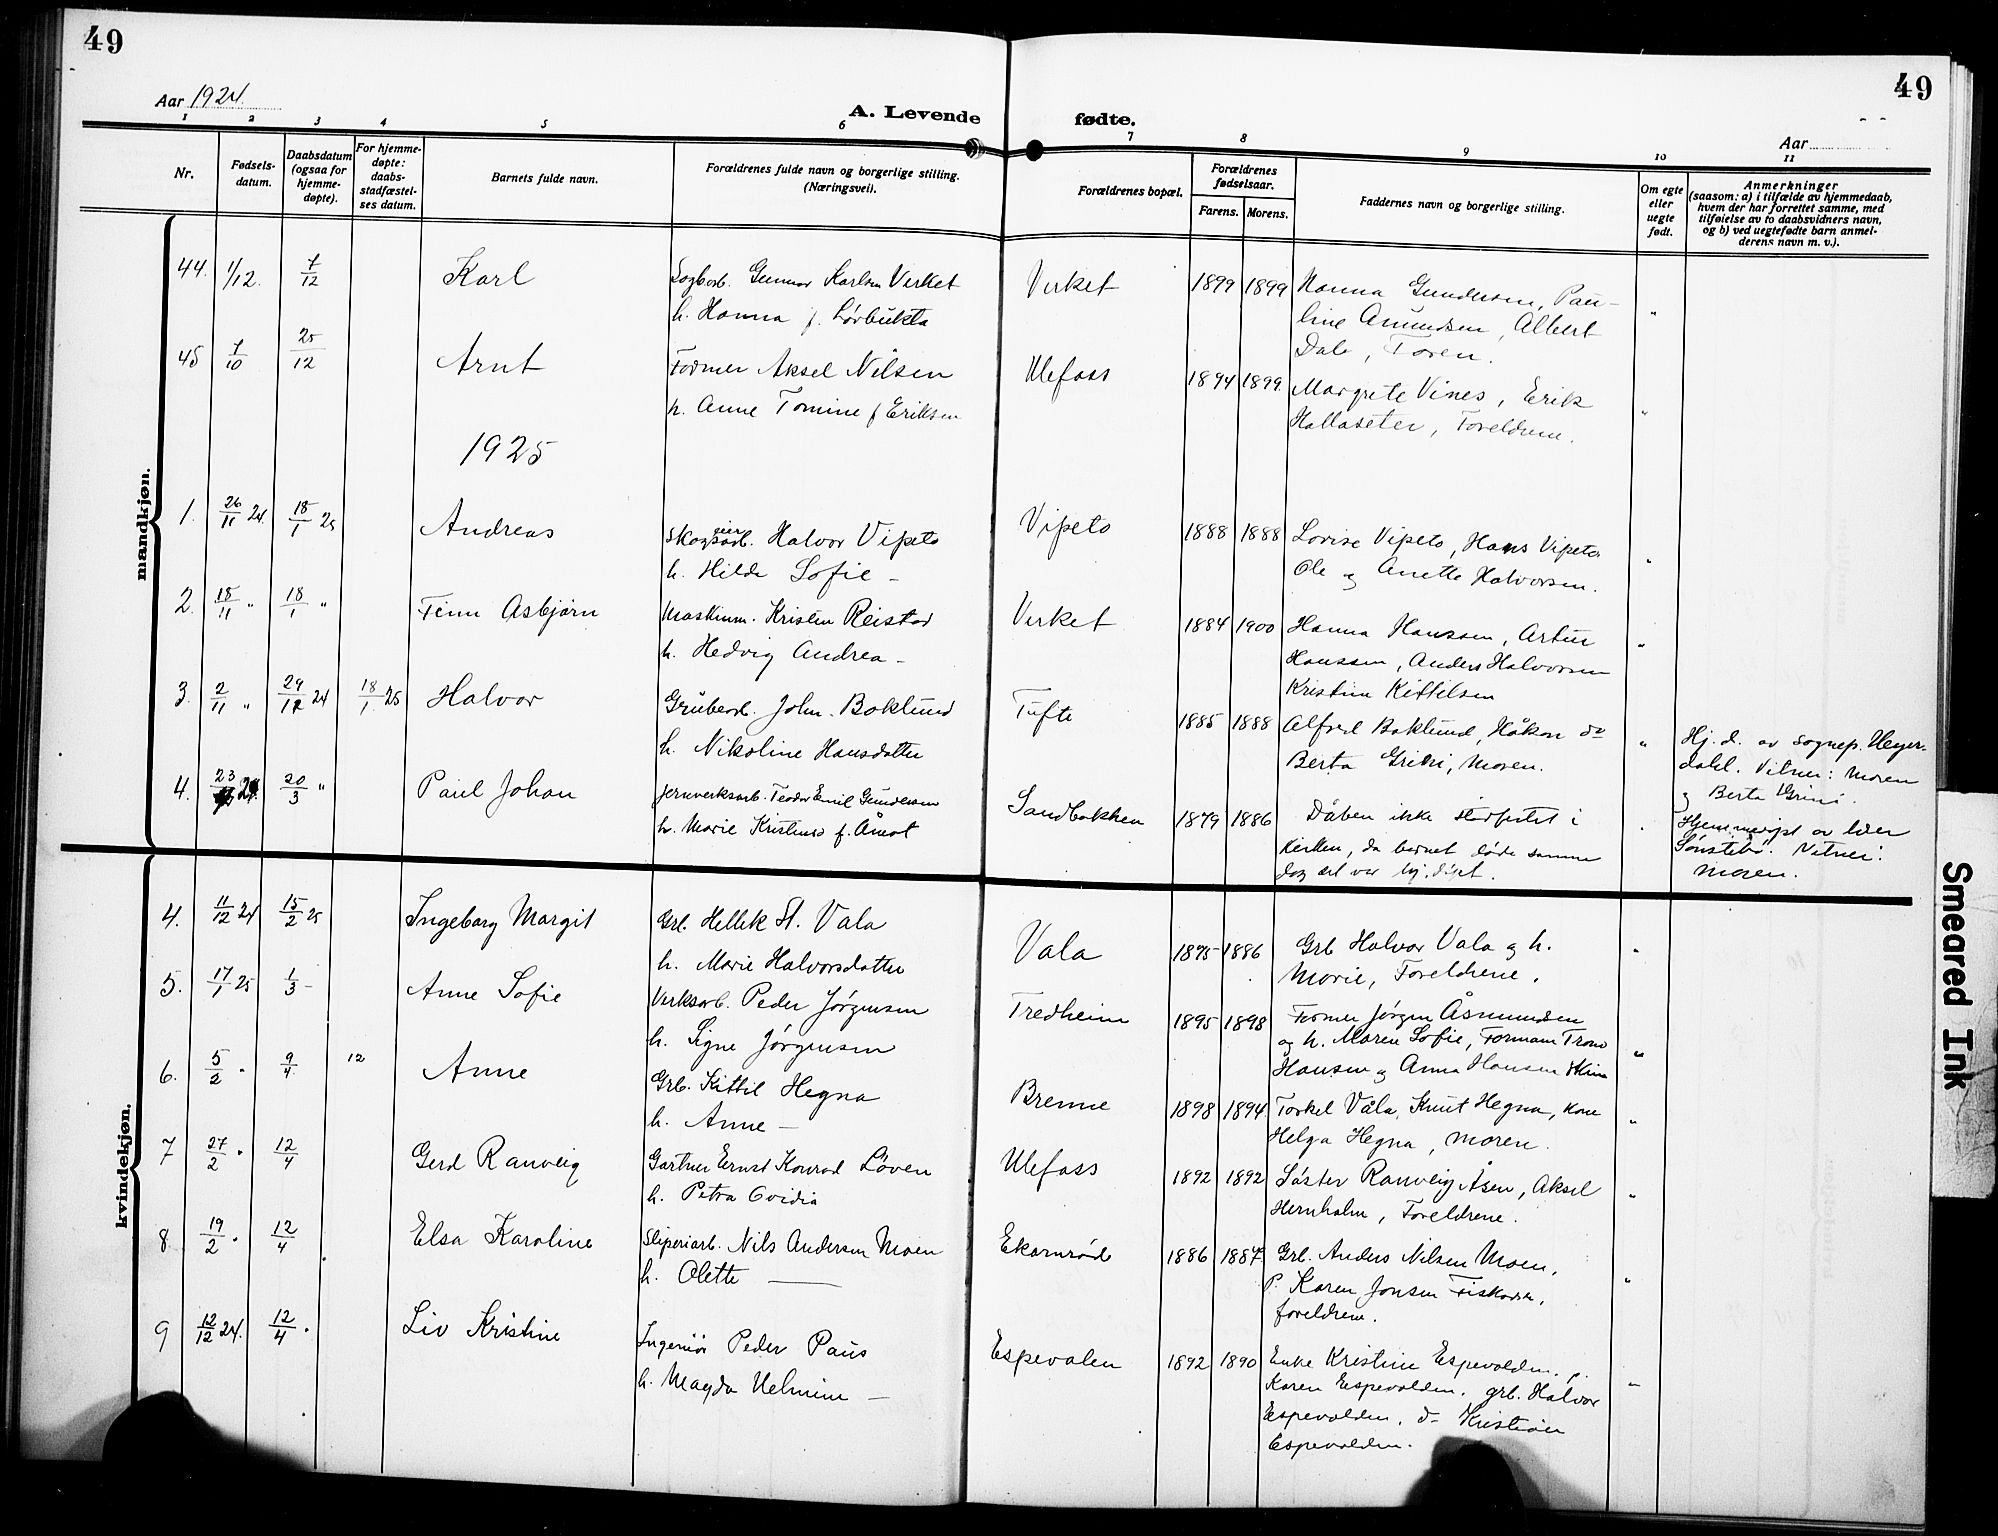 49
49
Aar 1924.
A. Levende fødte.
Aar
1 2 3 4 5 6 7 8 9 10 11
Nr.
Fødsels-
datum.
Daabsdatum
(ogsaa for
hjemme-
døpte).
For hjemme-
døpte:
daabs-
stadfæstel-
ses datum.
Barnets fulde navn.
Forældrenes fulde navn og borgerlige stilling.
(Næringsvei).
Forældrenes bopæl.
Forældrenes
fødselsaar.
Farens. Morens.
Faddernes navn og borgerlige stilling.
Om egte
eller
uegte
født.
Anmerkninger
(saasom: a) i tilfælde av hjemmedaab,
hvem der har forrettet samme, med
tilføielse av to daabsvidners navn,
og b) ved uegtefødte barn anmel-
derens navn m. v.).
mandkjøn.
44. 1/12. 7/12 Karl Sagbarb. Gunnar Karlsen Virket Virket 1899 1899 Hanna Gundersen, Pau-
h. Hanna f. Lørbukta line Amundsen, Albert "
Dale, Faren.
45 7/10 25/12 Arnt Former Aksel Nilsen Ulefoss 1894 1899. Margrete Vines, Erik
h. Anne Tomine f Eriksen Hallaseter, Foreldrene. "
1925
1. 26/11 24. 18/1 25 Andreas Skogseierarb. Halvor Vipeto Vipeto 1888 1888 Lovise Vipeto, Hans Vipeto
h. Hilde Sofie – Ole og Anette Halvorsen. "
2. 18/11 " 18/1 " Finn Asbjørn Maskinm. Kristen Reistad Virket 1884 1900 Hanna Hanssen, Artur
h. Hedvig Andrea – Hanssen, Anders Halvorsen "
Kristine Kittilsen
3. 2/11 " 29/12 24 18/1 25 Halvor Grubearb. John Boklund Tufte 1885 1888 Alfred Boklund, Håkon do " Hj. d. av sognep. Heyer-
h. Nikoline Hansdatter Berta Grini, Moren. dahl. Vitner: Moren
og Berta Grini.
4. 23/ 24. 20/3 " Paul Johan Jernverksarb. Teodor Emil Gundersen Sandbakken 1879 1886 Dåben ikke stadfestet i Hjemmedøpt av lærer
h. Marie Kristine f. Åmot kirken, da barnet døde samme Sønstebø. Vitner:
dag det var hj. døpt. Moren.
kvindekjøn.
4. 11/12 24 15/2 25 Ingeborg Margit Grb. Hellek H. Vala Vala 1875 1886 Grb Halvor Vala og h. "
h. Marie Halvorsdatter Marie, Foreldrene.
5. 17/1 25 1/3 – Anne Sofie Verksarb. Peder Jørgensen Tredheim 1895 1898 Former Jørgen Åsmundsen
h. Signe Jørgensen og h. Maren Sofie, Formann Trond "
Hansen og Anna Hansen
6. 5/2 " 9/4. 12 Anne Grb. Kittil Hegna Brenne 1898 1894 Torkel Våla, Knut Hegna, kone
h. Anne – Helga Hegna, moren. "
7 27/2 " 12/4 Gerd Ranveig Gartner Ernst Konrad Løven Ulefoss 1892 1892 Søster Ranveig Åsen, Aksel
h. Petra Ovidia Hernholm, Foreldrene. "
8 19/2 " 12/4 Elsa Karoline Sliperiarb. Nils Andersen Moen Ekornrød 1886 1887 Grb. Anders Nilsen Moen,
h. Olette – P. Karen Jonsen Fiskodden, "
foreldrene.
9 12/12 24. 12/4 " Liv Kristine Ingeniør Peder Paus Espevalen 1892 1890 Enke Kristine Espevolden, p.
h. Magda Helmine – Karen Espevolden. grb. Halvor "
Espevolden, do Kristian
Espevolden.
Smeared Ink